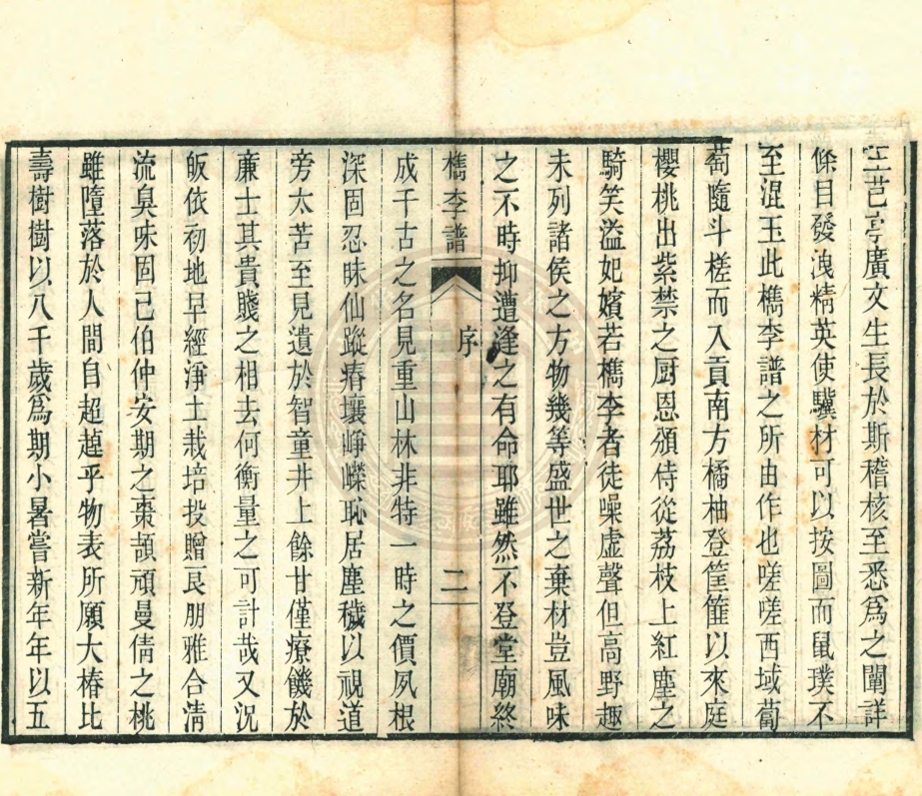 芑亭廣文生長於斯稽核至悉爲之闡詳
條目發洩精英使驥材可以按圖而鼠璞不
至混玉此檇李譜之所由作也嗟嗟西域葡
萄隨斗槎而入貢南方橘柚登筐篚以來庭
櫻桃出紫禁之厨恩頒侍從荔枝上紅塵之
騎笑溢妃嬪若檇李者徒噪虛聲但高野趣
未列諸侯之方物幾等盛世之棄材豈風味
之不時抑遭逢之有命耶雖然不登堂廟終
檇李譜 序 二
成千古之名見重山林非特一時之價夙根
深固忍昧仙蹤瘠壤崢嶸恥居塵穢以視道
旁太苦至見遺於智童井上餘甘僅療饑於
廉士其貴賤之相去何衡量之可計哉又況
皈依初地早經淨土栽培投贈良朋雅合清
流臭味固已伯仲安期之棗頡頏曼倩之桃
雖墮落於人間自超越乎物表所願大椿比
壽樹樹以八千歲爲期小暑嘗新年年以五